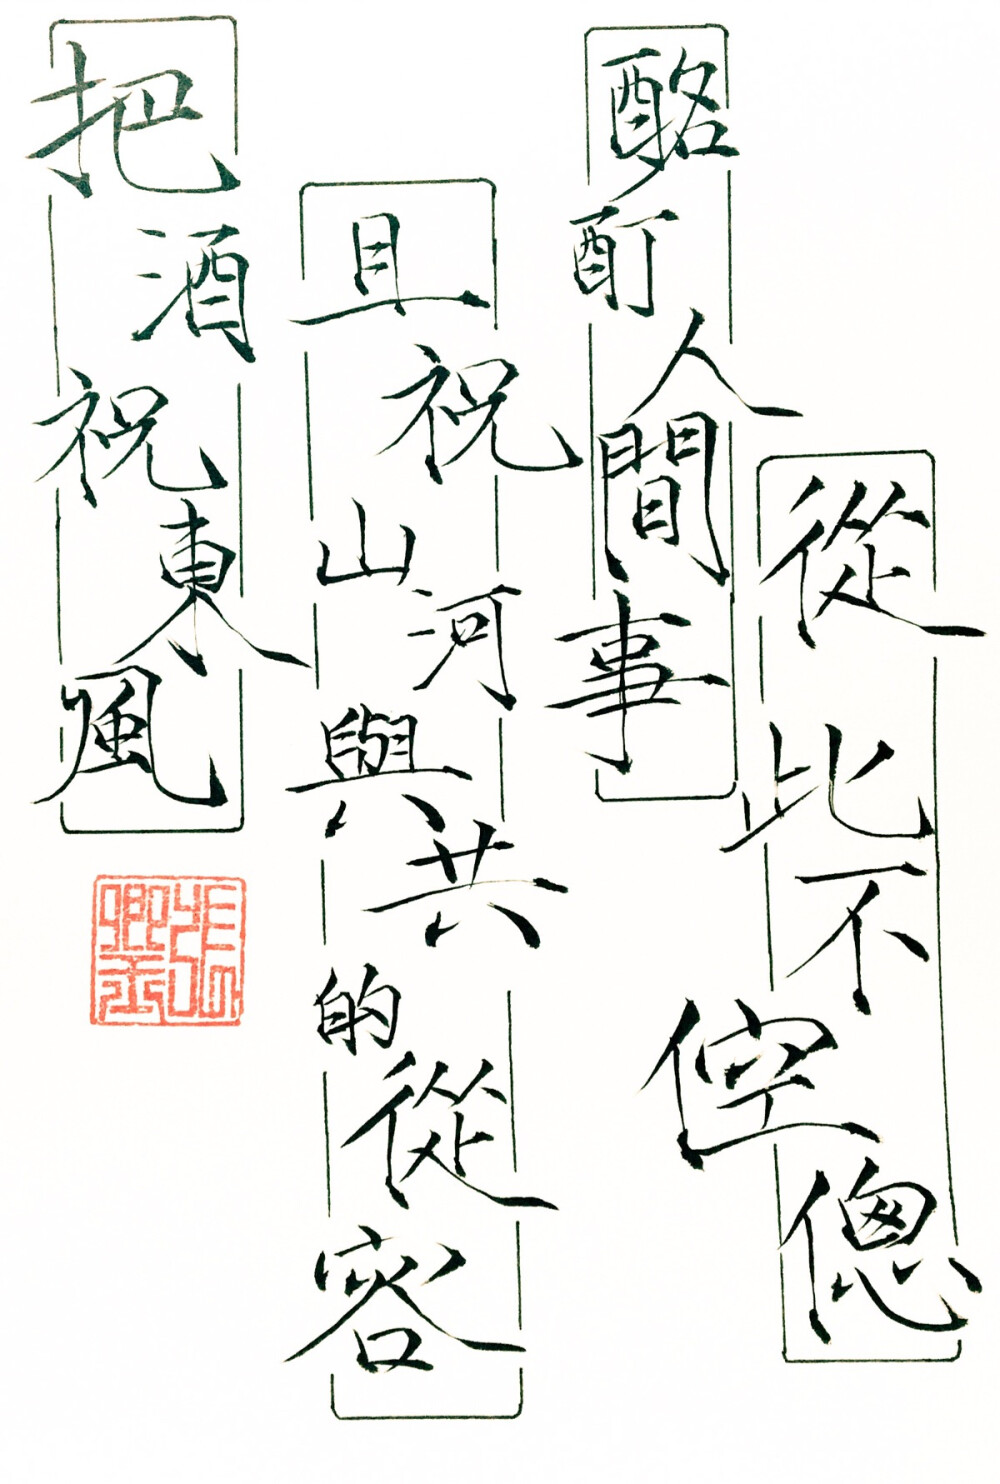 從此不倥傯
酩酊人間事
且祝山河與共的從容
把酒祝東風